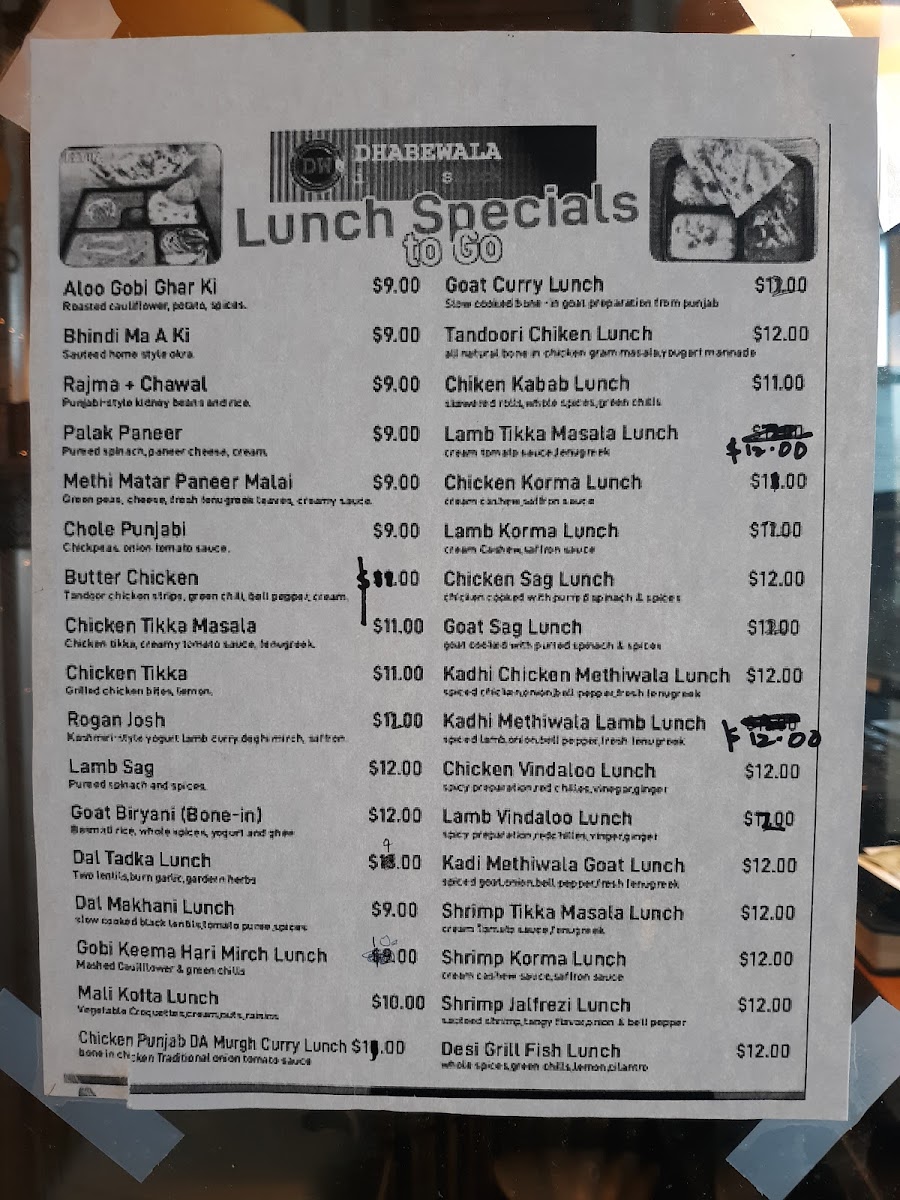 DW
DHABEWALA
Lunch Specials
to Go
Aloo Gobi Ghar Ki $9.00
Roasted cauliflower, potato, spices.
Bhindi Ma A Ki $9.00
Sauteed home style okra.
Rajma + Chawal $9.00
Punjabi-style kidney beans and rice.
Palak Paneer $9.00
Pureed spinach, paneer cheese, cream.
Methi Matar Paneer Malai $9.00
Green peas, cheese, fresh fenugreek leaves, creamy sauce.
Chole Punjabi $9.00
Chickpeas, onion tomato sauce.
Butter Chicken $11.00
Tandoor chicken strips, green chili, bell pepper, cream.
Chicken Tikka Masala $11.00
Chicken tikka, creamy tomato sauce, fenugreek.
Chicken Tikka $11.00
Grilled chicken bites, lemon.
Rogan Josh $12.00
Kashmiri-style yogurt lamb curry, deghi mirch, saffron.
Lamb Sag $12.00
Pureed spinach and spices.
Goat Biryani (Bone-in) $12.00
Basmati rice, whole spices, yogurt and ghee
Dal Tadka Lunch $9.00
Two lentils,burn garlic, gardern herbs
Dal Makhani Lunch $9.00
slow cooked black lentils,tomato puree ,spices
Gobi Keema Hari Mirch Lunch $10.00
Mashed Cauilflower & green chills
Mali Kotta Lunch $10.00
Vegetable Croquettes,cream,nuts,raisins
Chicken Punjab DA Murgh Curry Lunch $11.00
bone in chicken Traditional onion tomato sauce
Goat Curry Lunch $12.00
Slow cooked bone - in goat preparation from punjab
Tandoori Chiken Lunch $12.00
all natural bone in chicken gram masala,yougart marinade
Chiken Kabab Lunch $11.00
skewered rolls,whole spices,green chills
Lamb Tikka Masala Lunch $12.00
cream tomato sauce,fenugreek
Chicken Korma Lunch $11.00
cream cashew,saffron sauce
Lamb Korma Lunch $11.00
cream Cashew,saffron sauce
Chicken Sag Lunch $12.00
chicken cooked with purred spinach & spices
Goat Sag Lunch $12.00
goat cooked with purred spinach & spices
Kadhi Chicken Methiwala Lunch $12.00
spiced chicken,onion,bell pepper,fresh fenugreek
Kadhi Methiwala Lamb Lunch $12.00
spiced lamb,onion,bell pepper,fresh fenugreek
Chicken Vindaloo Lunch $12.00
spicy preparation,red chilles,vinegar,ginger
Lamb Vindaloo Lunch $12.00
spicy preparation,redchilles,vinger,ginger
Kadi Methiwala Goat Lunch $12.00
spiced goat,onion,bell pepper,fresh fenugreek
Shrimp Tikka Masala Lunch $12.00
cream Tomato sauce,fenugreek
Shrimp Korma Lunch $12.00
cream cashew sauce,saffron sauce
Shrimp Jalfrezi Lunch $12.00
sauteed shrimp,tangy flavor,onion & bell pepper
Desi Grill Fish Lunch $12.00
whole spices,green chills,lemon,cilantro